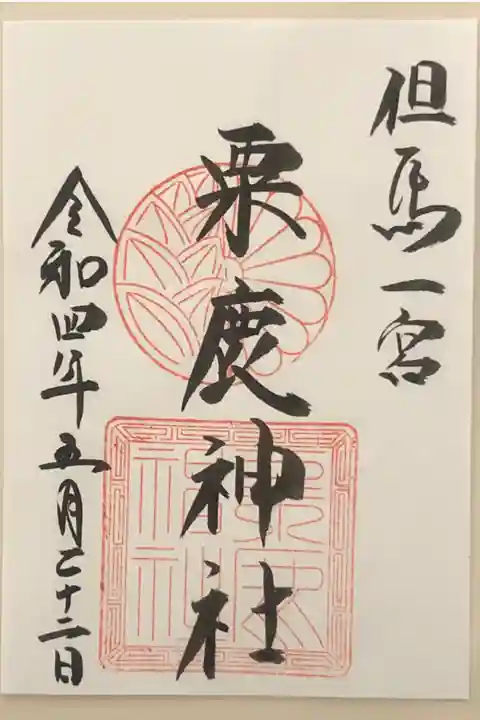 但馬一宮
粟鹿神社
令和四年五月二十二日